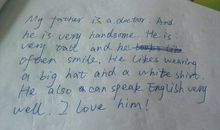 My father is a doctor And
he is very handsome. He is
very tall and he
often smile, He Likes wearing
a big hat and a white shirt.
He also can speak English very
well. I love him!